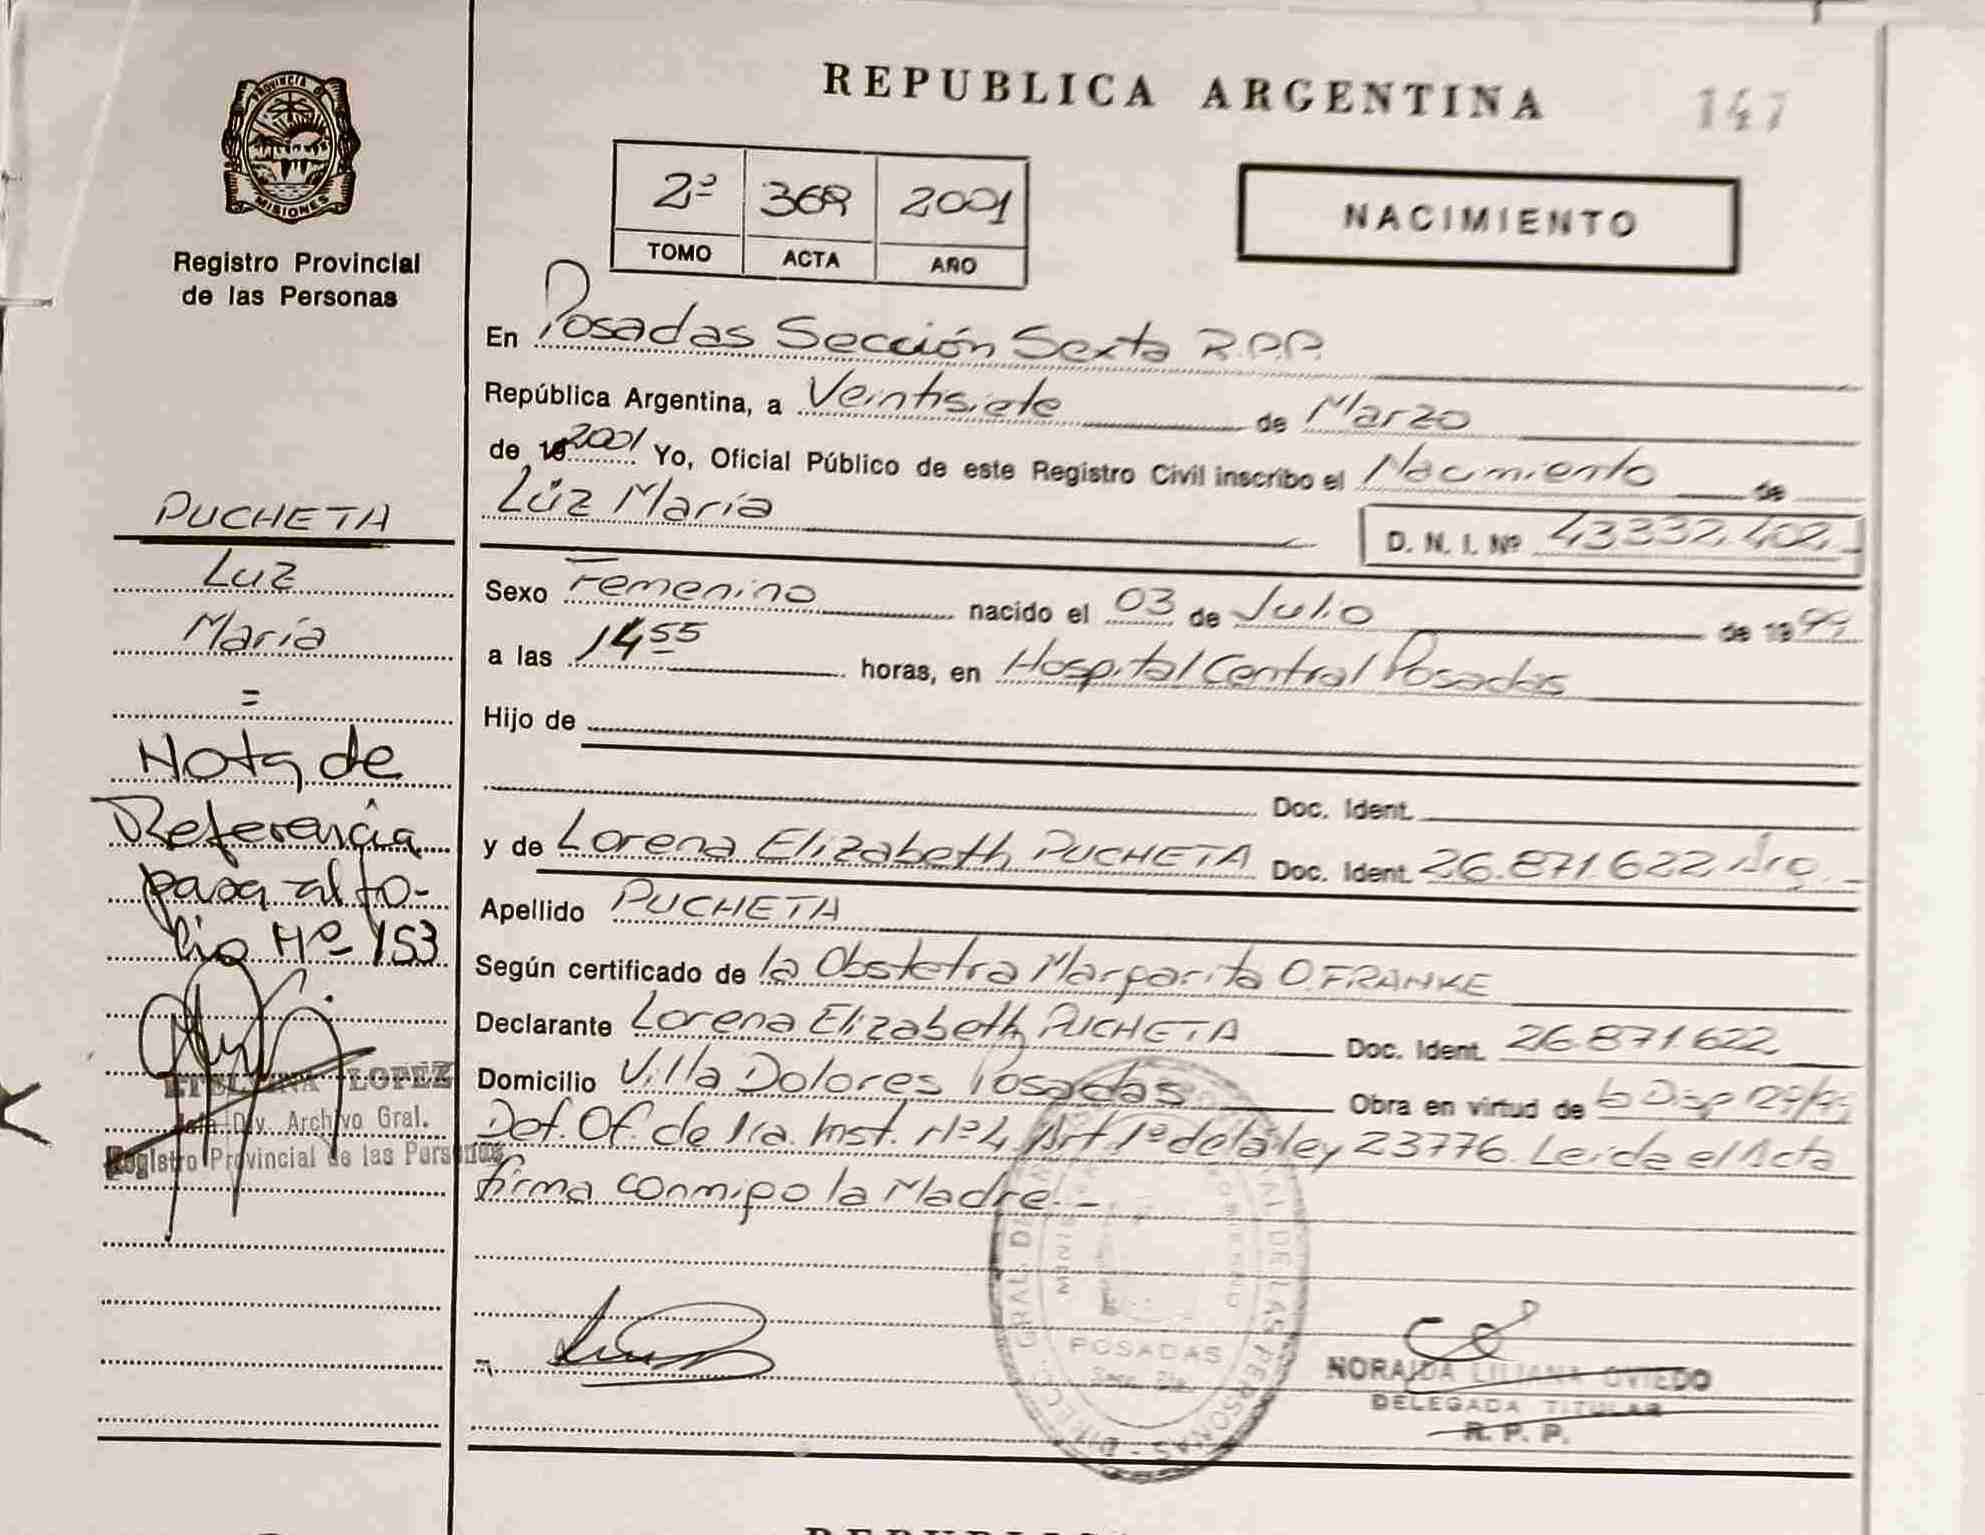 PROVINCIA D
MISIONES
Registro Provincial
de las Personas
REPUBLICA ARGENTINA
147
2º 369 2001
TOMO ACTA AÑO
NACIMIENTO
En Posadas Sección Sexta R.P.P.
República Argentina, a Veintisiete de Marzo
de 19 2001 Yo, Oficial Público de este Registro Civil inscribo el Nacimiento de
Lúz María
D. N. I. Nº 43332.402
Sexo Femenino nacido el 03 de Julio de 1999
a las 14 55 horas, en Hospital Central Posadas
Hijo de
Doc. Ident.
y de Lorena Elizabeth PUCHETA Doc. Ident. 26.871.622 Arg.
Apellido PUCHETA
Según certificado de la Obstetra Margarita O. FRANKE
Declarante Lorena Elizabeth PUCHETA Doc. Ident. 26.871.622
Domicilio Villa Dolores Posadas Obra en virtud de Disp
Def. Of. de 1ra. Inst. Nº 4, Art. 1º de la ley 23776. Leida el Acta
firma conmigo la Madre. -
PUCHETA
Luz
María
=
Nota de
Referencia
pasa al fo-
lio Nº 153
LOPEZ
Jefa Div. Archivo Gral.
Registro Provincial de las Personas
POSADAS
NORAIDA LILIANA OVIEDO
DELEGADA TITULAR
R. P. P.